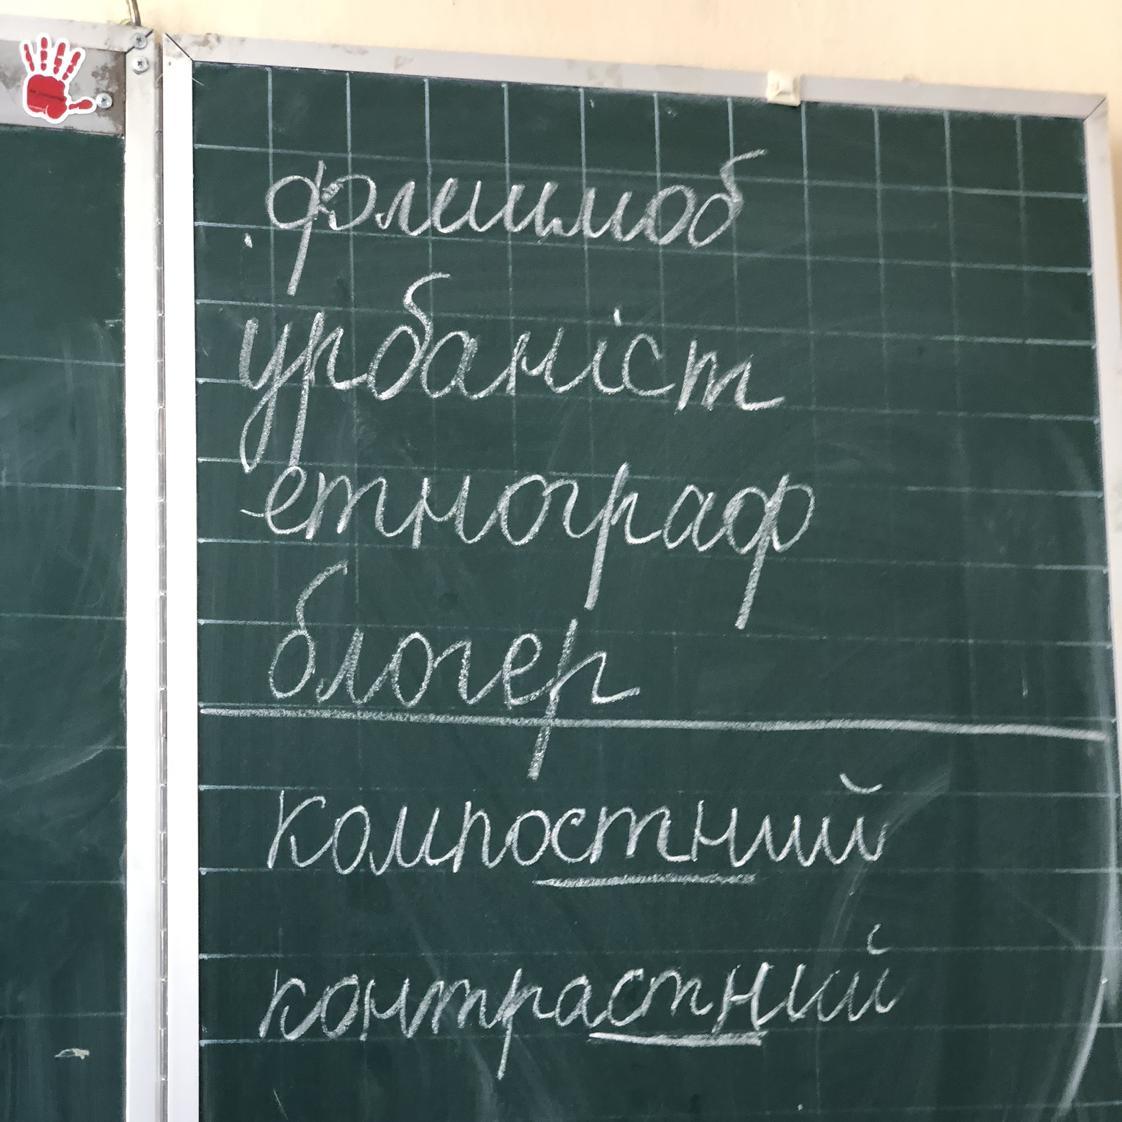 флешмоб
урбаніст
етнограф
блогер
компостний
контрастний